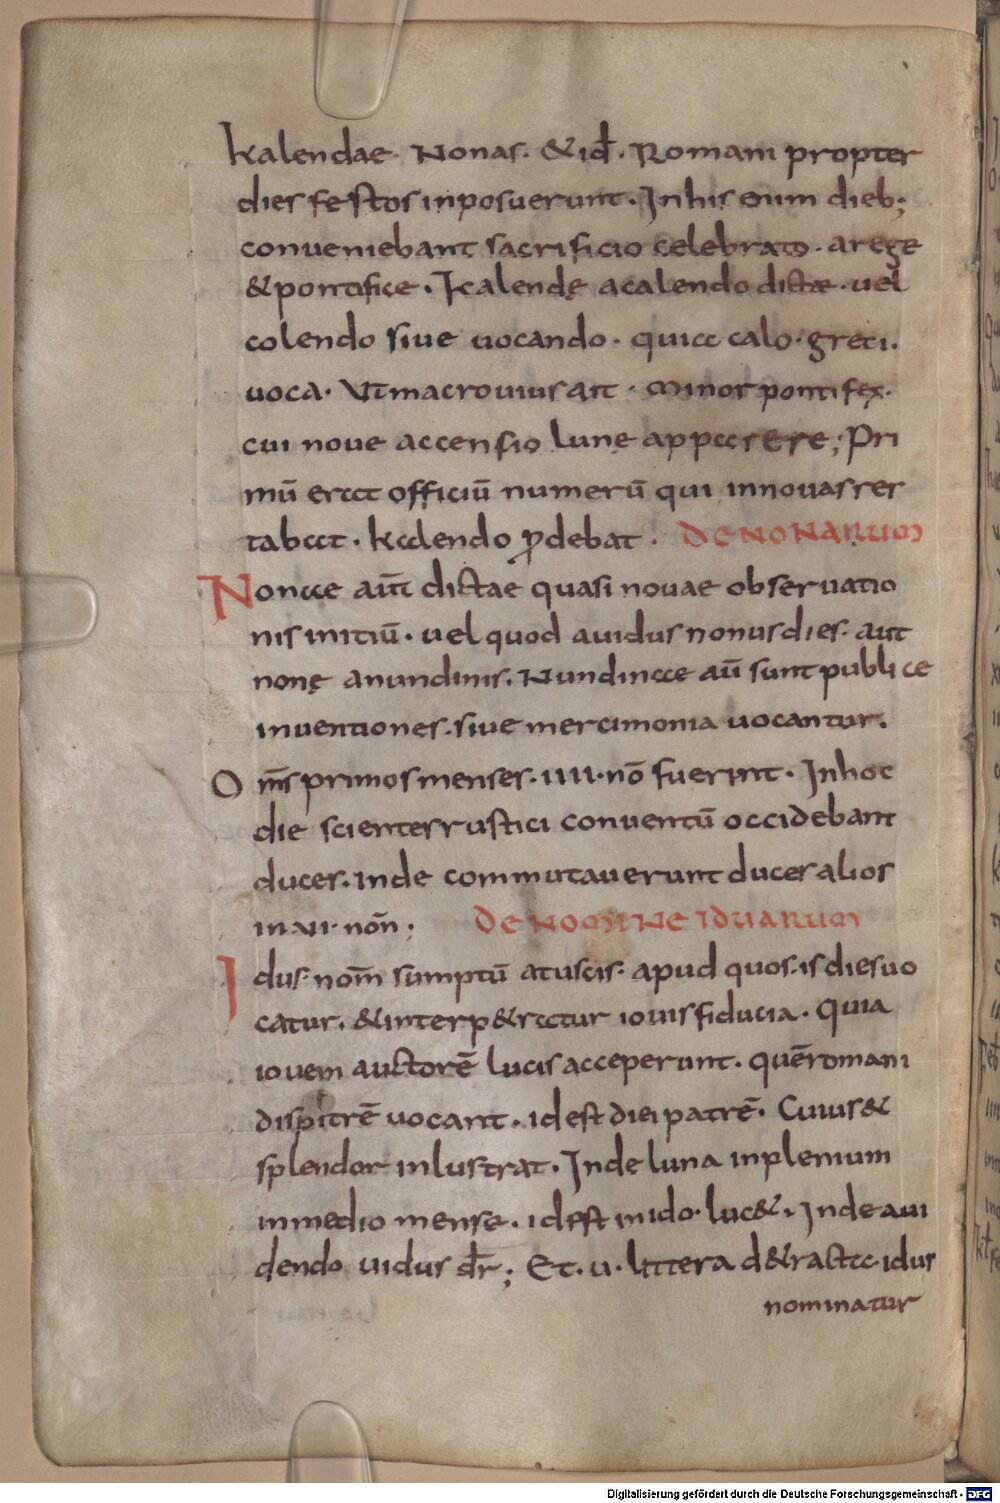 Kalendae. Nonas. & id̄. Romani propter
dies festos inposuerunt. In his enim dieb;
conveniebant sacrificio celebrato. a rege
& pontifice. Kalendę a calendo dictae. vel
colendo sive uocando. quia calo. greci.
uoca. Ut macrouius ait. minor pontifex.
cui noue accensio lunę apparere; Pri
mū erat officiū numerū qui innovas res
tabat. kalendo ꝓdebat. DE NONARUM
Nonae aūt dictae quasi novae observatio
nis initiū. vel quod auidus nonus dies. aut
nonę anundinis. Nundinae aū sunt publice
inventiones. sive mercimonia uocantur.
Om̄s primos menses. IIII. nō fuerunt. In hoc
die scienter rustici conventū occidebant
duces. inde commutauerunt duces alios
in VI. nōn. DE NOMINE IDUARUM
Idus. nom̄ sumptū a tuscis. apud quos. is dies uo
catur. & interp&ratur iouis fiducia. Quia
iouem auctorē lucis acceperunt. quē romani
dispitrē uocant. id est diei patrē. Cuius &
splendor inlustrat. Inde luna in plenium
in medio mense. id est in ido. luc&. Inde aui
dendo uidus dr̄; Et. u. littera d&racta. idus
nominatur
Digitalisierung gefördert durch die Deutsche Forschungsgemeinschaft - DFG